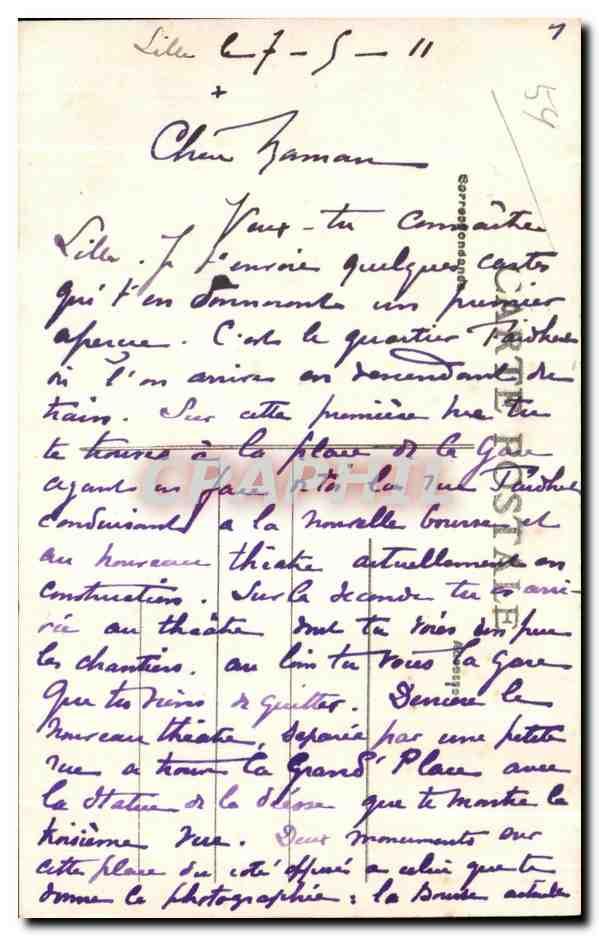 Lille le 7 - 5 - 11
7
59
+
Chère Maman
Veux-tu connaître
Lille. Je t'envoie quelques cartes
qui t'en donneront un premier
apercue. C'est le quartier Faidherbe
où l'on arrive en descendant du
train. Sur cette première vue tu
te trouves à la place de la Gare
ayant en face de toi la rue Faidherbe
conduisant a la nouvelle bourse et
au nouveau théatre actuellement en
construction. Sur la seconde tu es arri-
vée au théâtre dont tu vois un peu
les chantiers. au loin tu vois la Gare
que tu viens de quitter. Derrière le
nouveau théatre, separée par une petite
rue se trouve la Grand' Place avec
la statue de la déesse que te montre la
troisième vue. Deux monuments sur
cette place du coté opposé a celui que te
donne la photographie : la Bourse actuelle
Correspondance
CARTE POSTALE
Adresse
CPAPHIL